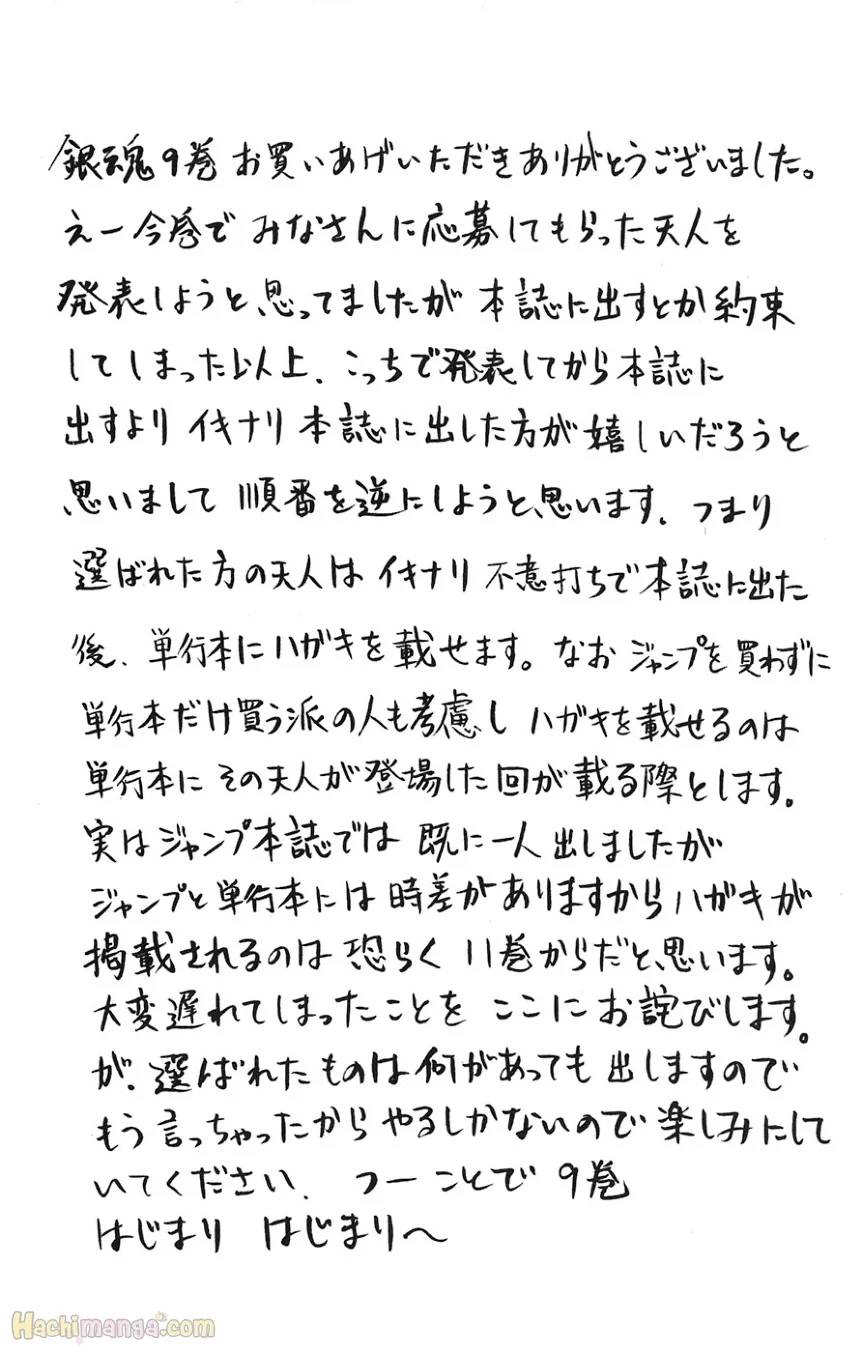 銀魂9巻 お買いあげいただきありがとうございました。
えー今巻で みなさんに応募してもらった天人を
発表しようと思ってましたが 本誌に出すとか約束
してしまった以上、こっちで発表してから本誌に
出すより イキナリ 本誌に出した方が嬉しいだろうと
思いまして 順番を逆にしようと思います。つまり
選ばれた方の天人は イキナリ 不意打ちで本誌に出た
後、単行本にハガキを載せます。なお ジャンプを買わずに
単行本だけ買う派の人も考慮し ハガキを載せるのは
単行本に その天人が登場した回が載る際とします。
実はジャンプ本誌では 既に一人出しましたが
ジャンプと単行本には時差がありますからハガキが
掲載されるのは 恐らく 11巻からだと思います。
大変遅れてしまったことを ここにお詫びします。
が、選ばれたものは何があっても出しますので
もう言っちゃったからやるしかないので楽しみにして
いてください。つーことで 9巻
はじまり はじまりへ
Hachimanga.com